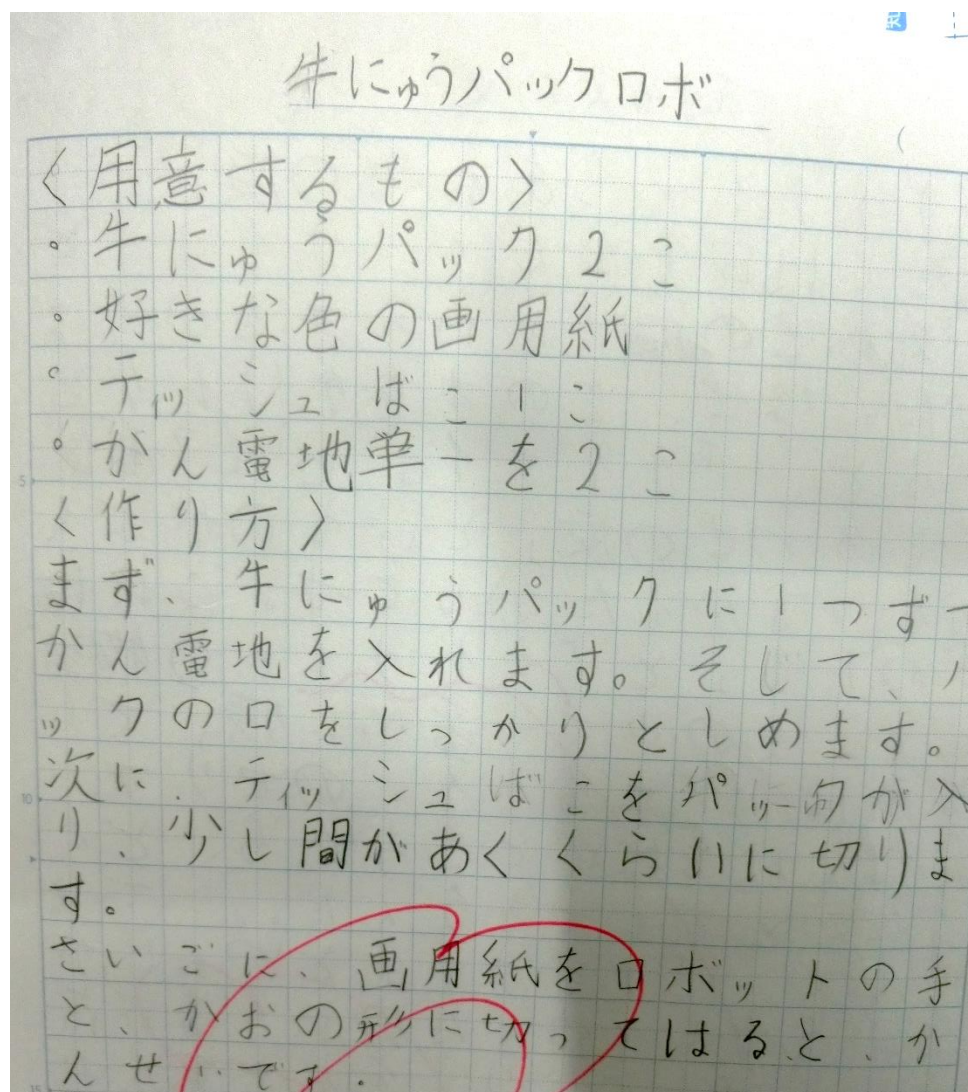 牛にゅうパックロボ
〈用意するもの〉
・牛にゅうパック2こ
・好きな色の画用紙
・ティッシュばこ1こ
・かん電地単一を2こ
〈作り方〉
まず、牛にゅうパックに1つずつ
かん電地を入れます。そして、パ
ックの口をしっかりとしめます。
次に、ティッシュばこをパックが入
り、少し間があくくらいに切りま
す。
さいごに、画用紙をロボットの手
と、かおの形に切ってはると、か
んせいです。
5
10
15